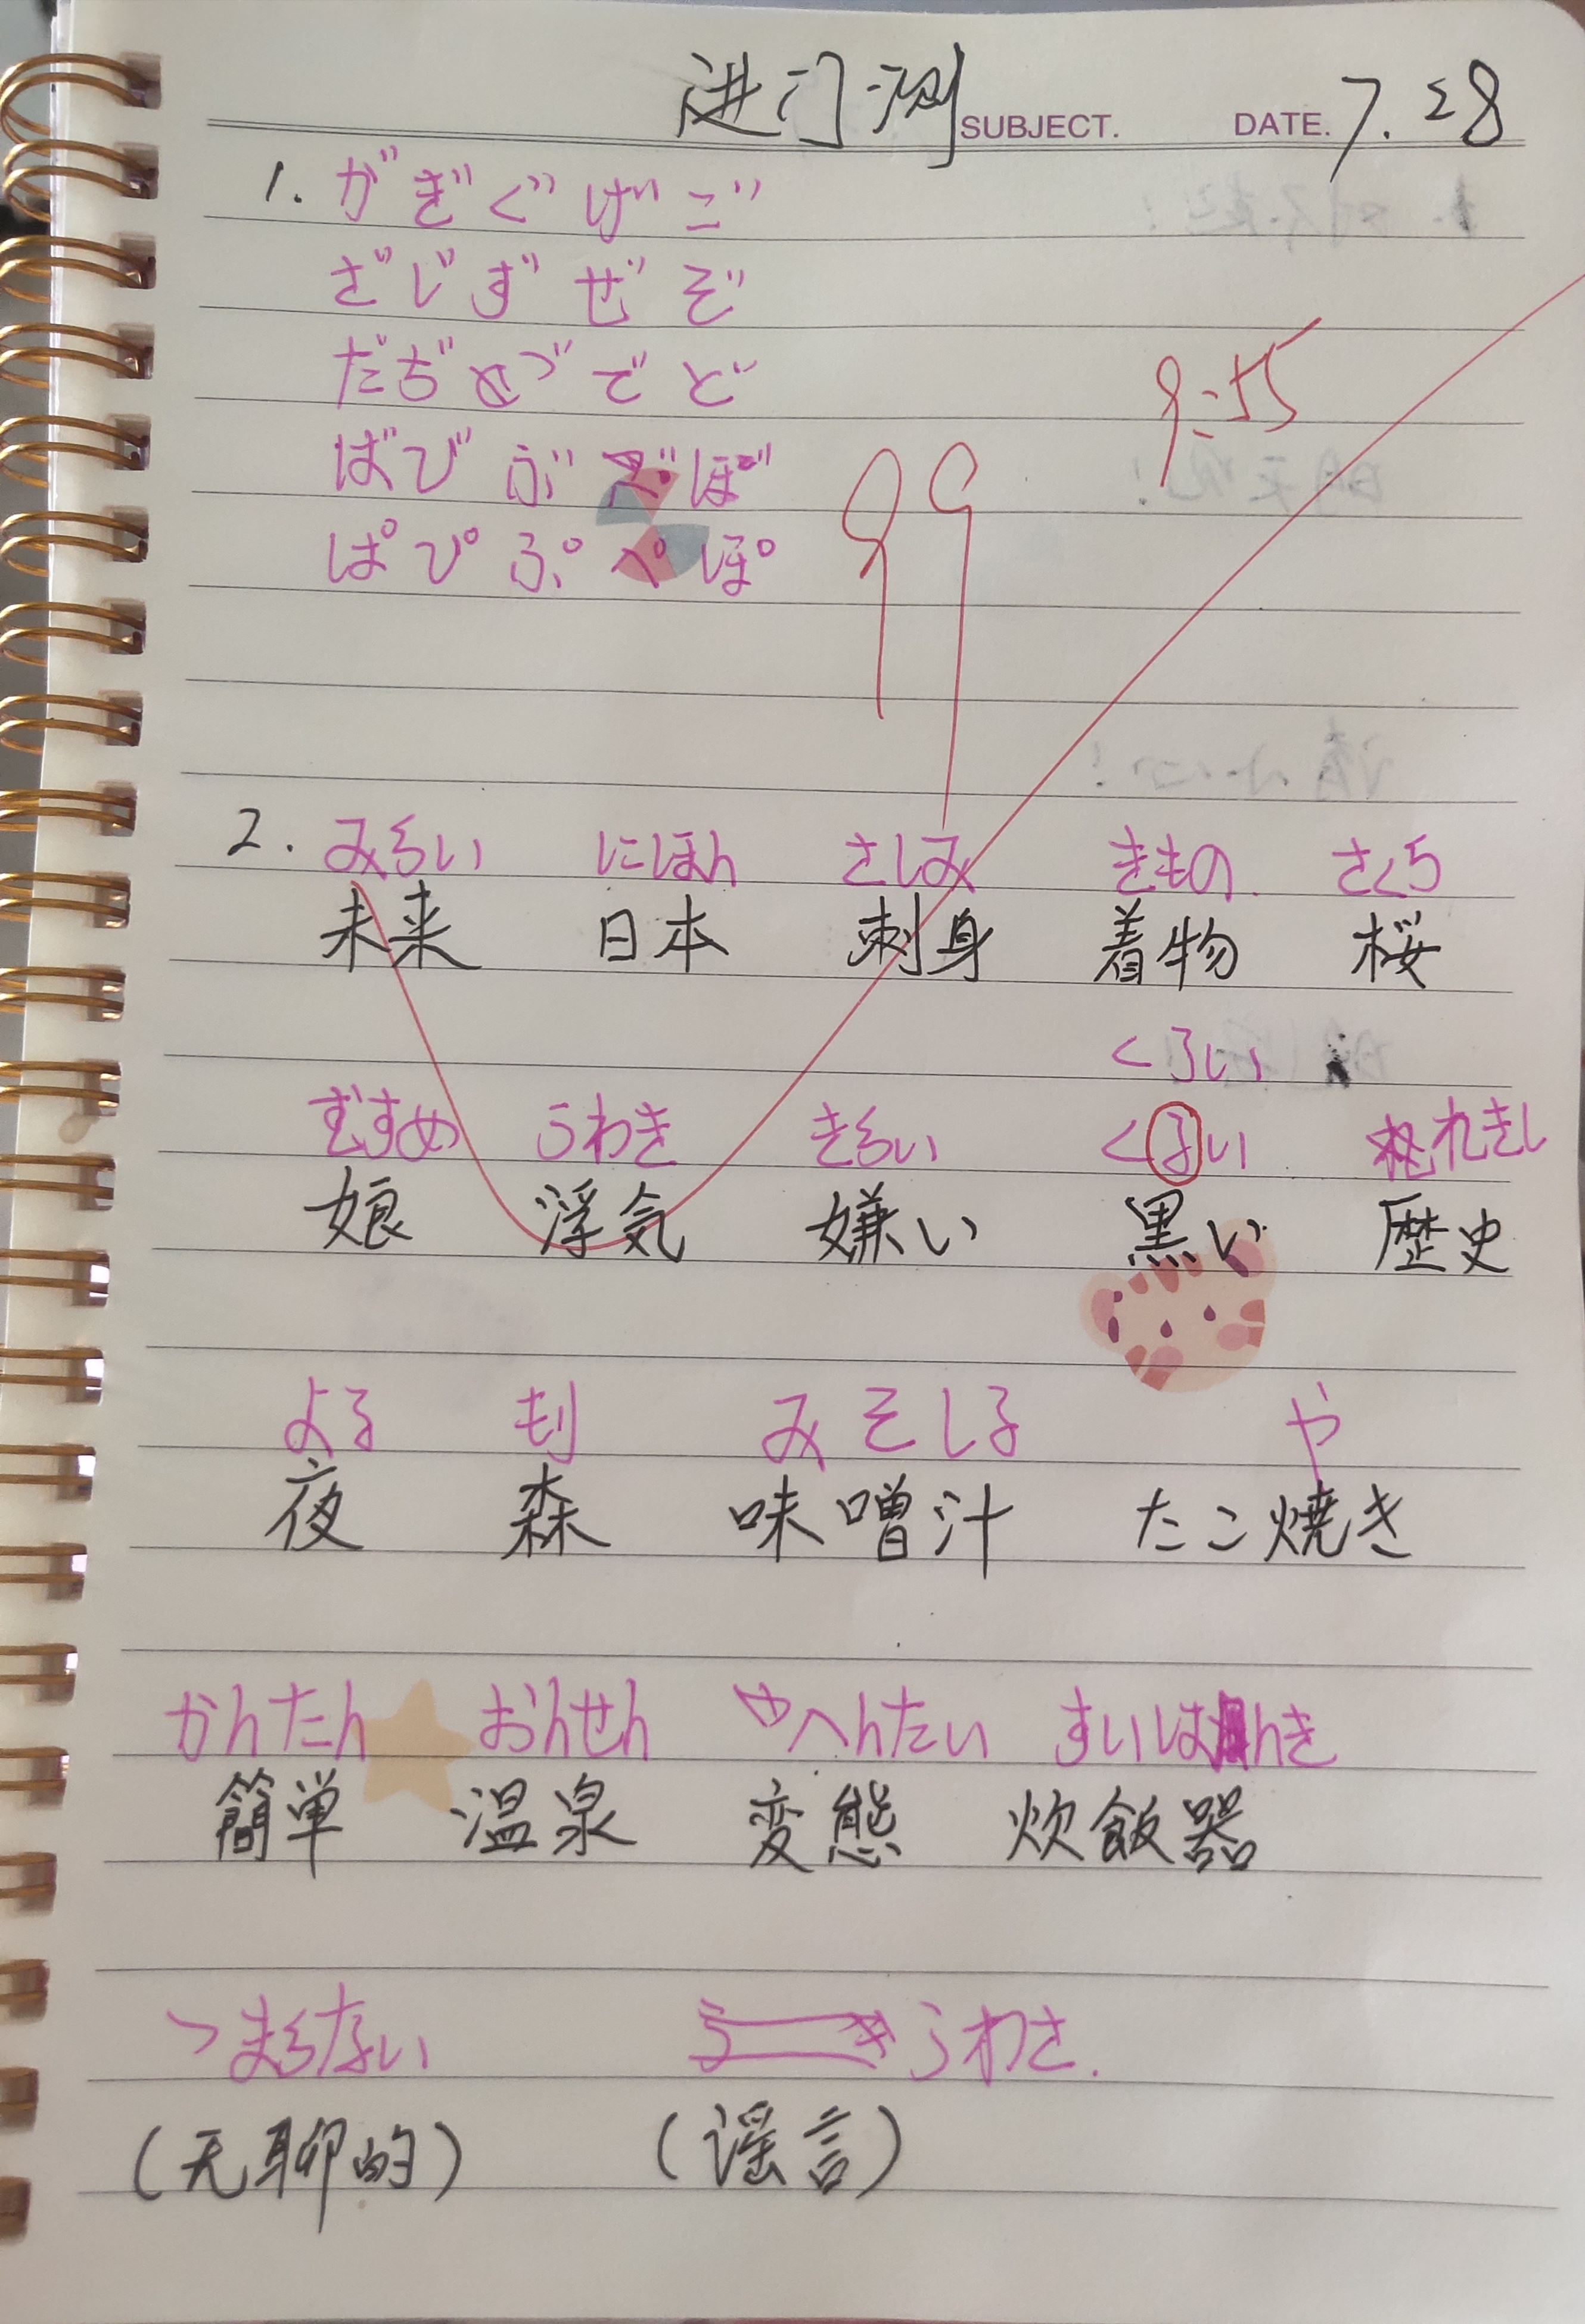 进门测 SUBJECT. DATE. 7.28
1. がぎぐげご
ざじずぜぞ
だぢづでど
ばびぶべぼ
ぱぴぷぺぽ
9:55
99
2. みらい にほん さしみ きもの さくら
未来 日本 刺身 着物 桜
くろい
むすめ うわき きらい くるい れきし
娘 浮気 嫌い 黒い 歴史
よる もり みそしる や
夜 森 味噌汁 たこ焼き
かんたん おんせん へんたい すいはんき
簡単 温泉 変態 炊飯器
つまらない うわさ.
(无聊的) (谣言)